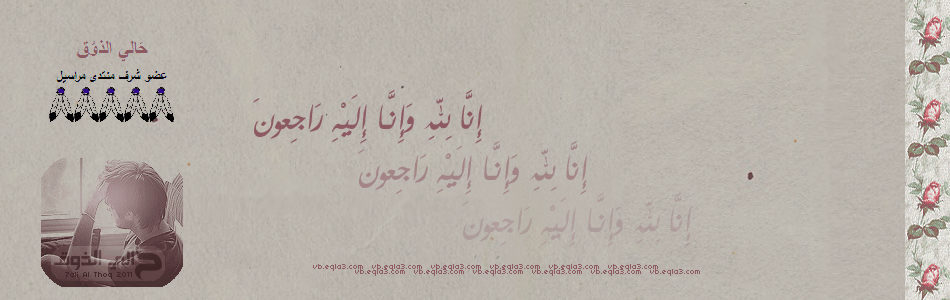 حَالي الذوُق
عضو شرف منتدى مراسيل
إِنَّا لِلّهِ وَإِنَّـا إِلَيْهِ رَاجِعونَ
إِنَّا لِلّهِ وَإِنَّـا إِلَيْهِ رَاجِعونَ
إِنَّا لِلّهِ وَإِنَّـا إِلَيْهِ رَاجِعونَ
حالي الذوق
7ali Al Thoq 2011
vb.eqla3.com vb.eqla3.com vb.eqla3.com vb.eqla3.com vb.eqla3.com vb.eqla3.com
vb.eqla3.com vb.eqla3.com vb.eqla3.com vb.eqla3.com vb.eqla3.com vb.eqla3.com